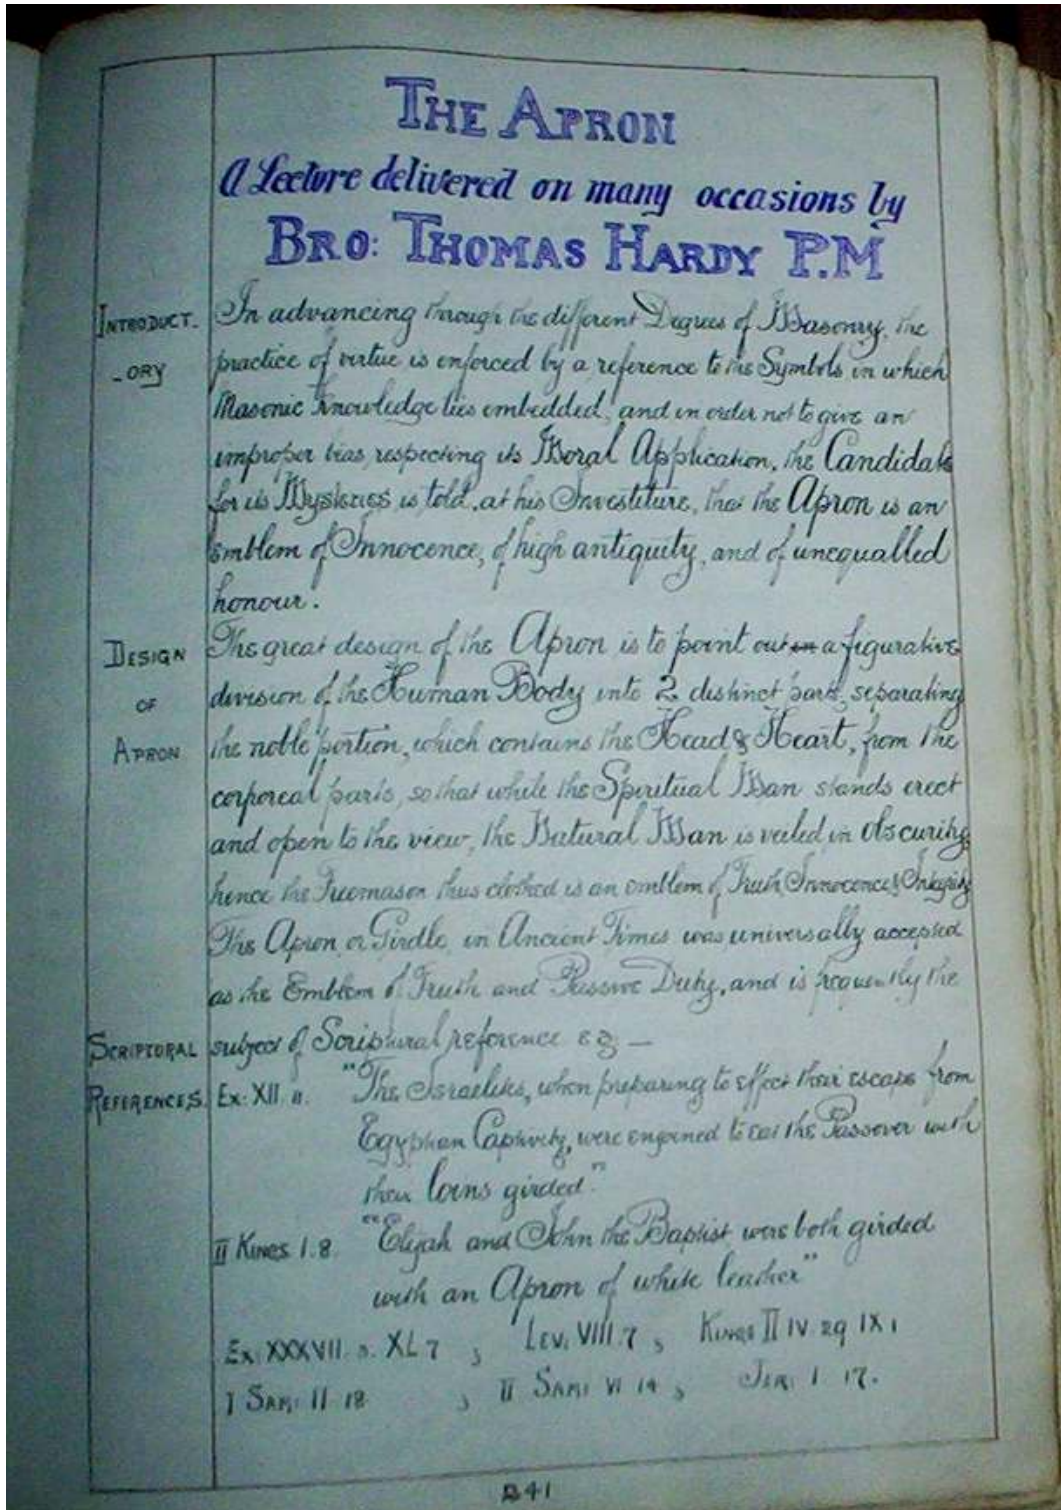 THE APRON
A Lecture delivered on many occasions by
BRO: THOMAS HARDY P.M
INTRODUCT-
-ORY
In advancing through the different Degrees of Masonry, the
practice of virtue is enforced by a reference to the Symbols in which
Masonic Knowledge lies embedded, and in order not to give an
improper bias, respecting its Moral Application, the Candidate
for its Mysteries is told, at his Investiture, that the Apron is an
emblem of Innocence, of high antiquity, and of unequalled
honour.
DESIGN
OF
APRON
The great design of the Apron is to point out a figurative
division of the Human Body into 2 distinct parts, separating
the noble portion, which contains the Head & Heart, from the
corporeal parts, so that while the Spiritual Man stands erect
and open to the view, the Natural Man is veiled in obscurity,
hence the Freemason thus clothed is an emblem of Truth, Innocence & Integrity
The Apron or Girdle, in Ancient Times was universally accepted
as the Emblem of Truth and Passive Duty, and is frequently the
SCRIPTORAL
REFERENCES.
subject of Scriptural reference eg —
Ex: XII. 11. "The Israelites, when preparing to effect their escape from
Egyptian Captivity, were enjoined to eat the Passover with
their loins girded."
II KINGS 1.8. "Elijah and John the Baptist were both girded
with an Apron of white leather"
Ex: XXXVII. XL 7 , LEV: VIII. 7 , KINGS II IV 29 IX 1
I SAM: II 18 , II SAM: VI 14 , JER: 1 17.
241